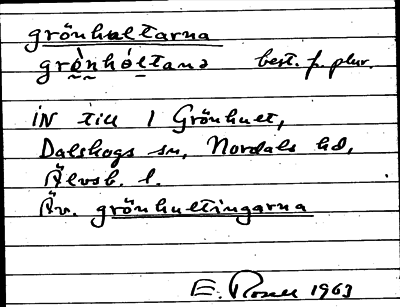 grönhultarna
grònhóltana best. f. plur.
iN till 1 Grönhult,
Dalskogs sn, Nordals hd,
Älvsb. l.
Äv. grönhultingarna
E. Rosell 1963